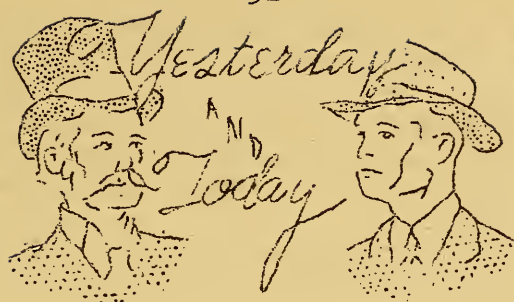 Yesterday
AND
Today